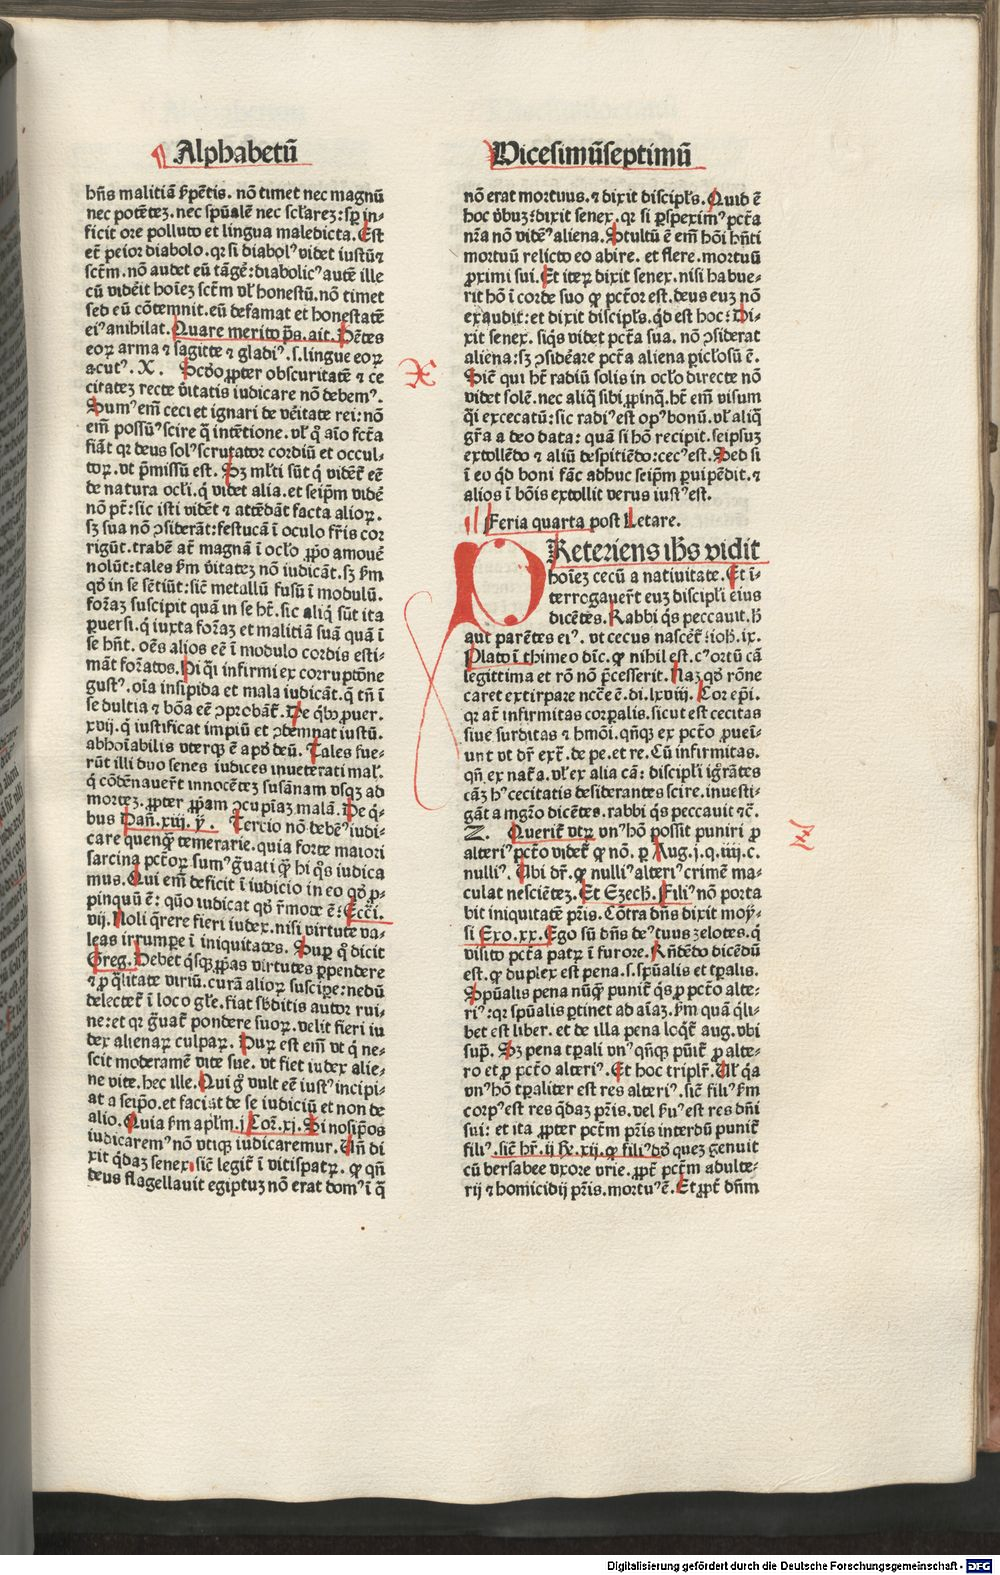 Alphabetū
hn̄s malitiā ẜpētis. nō timet nec magnū
nec potētez. nec spūalē nec sclarez: sꝑ in-
ficit ore polluto et lingua maledicta. Est
et̄ peior diabolo. qr si diabolꝰ videt iustūꝫ
sctm̄. nō audet eū tāgē: diabolicꝰ autē ille
cū viderit hoīez sctm̄ vl̓ honestū. nō timet
sed eū cōtemnit. eū defamat et honestatē
eiꝰ anihilat. Quare merito ꝓs. ait. Dētes
eoꝝ arma ⁊ sagitte ⁊ gladiꝰ. s. lingue eoꝝ
acutꝰ. X. Scd̓o ꝓpter obscuritatē ⁊ ce
citatez recte v̓itatis iudicare nō debemꝰ.
Sumꝰ em̄ ceci et ignari de vēitate rei: nō
em̄ possūꝰ scire q̄ intētione. vl̓ q̊ aīo fct̄a
fiāt qr deus solꝰ scrutator cordiū et occul-
toꝝ. vt p̄missū est. Sꝫ ml̓ti sūt q̇ vidēt̄ eē
de natura ocl̓i. q̇ videt alia. et seip̄m vidē
nō pt̄: sic isti vidēt ⁊ attēdāt facta alioꝝ.
sꝫ sua nō ↄsiderāt: festucā ī oculo fr̄is cor
rigūt. trabē at̄ magnā ī ocl̓o ꝓp̓o amouē
nolūt: tales ẜm v̓itatez nō iudicāt. sꝫ ẜm
qd̓ in se sētiūt: sic̄ metallū fusū ī modulū.
foꝛaꝫ suscipit quā in se ht̄. sic aliq̇ sūt ita
ꝑuersi. q̇ iuxta foꝛaꝫ et malitiā suā quā ī
se hn̄t. oēs alios eē ī modulo cordis esti-
māt foꝛatos. Si q̇i infirmi ex corruptōne
gustꝰ. oīa insipida et mala iudicāt. q̇ tn̄ ī
se dultia ⁊ bōa eē ↄprobāt̄. De qb̓ꝰ ꝓuer.
xvij. q̇ iustificat impiū et ↄdemnat iustū.
abhoīabilis vterqꝫ ē apd̓ deū. Tales fue-
rūt illi duo senes iudices inueterati mal̓.
q̇ cōdēnauer̄t innocētez susānam vsqꝫ ad
mortez. ꝓpter ꝓp̄am ↄcupīaꝫ malā. De q̇-
bus Dañ. xiij. ꝩ. Tercio nō debēꝰ iudi-
care quenqꝫ temerarie. quia forte maiori
sarcina pct̄oꝝ sumꝰ g̓uati qꝫ hi q̊s iudica
mus. Qui em̄ deficit ī iudicio in eo qd̓ ꝓ-
pinquū ē: quō iudicat qd̓ r̄motꝰ ē: Eccī.
vij. Noli q̇rere fieri iudex. nisi virtute va-
leas irrumpe ī iniquitates. Suꝑ q̊ dicit
Greg. Debet q̇sqꝫ ꝓp̄as virtutes ꝑpendere
⁊ ꝓ q̇litate viriū. curā alioꝝ suscipe: nedū
delectet̄ ī loco gl̄e. fiat sb̓ditis autor rui-
ne: et qr g̓uat̄ pondere suoꝝ. velit fieri iu
dex alienaꝝ culpaꝝ. Duꝝ est em̄ vt q̇ ne-
scit moderamē vite sue. vt fiet iudex alie-
ne vite. hec ille. Qui g̊ vult eē iustꝰ incipi-
at a seip̄o. et faciat de se iudiciū et non de
alio. Quia ẜm apl̄m. j Coꝛ. xj. Si nosip̄os
iudicaremꝰ nō vtiqꝫ iudicaremur. Vn̄ di
xit q̇daz senex. sic̄ legit̄ ī vitispatꝝ. ꝙ qn̄
deus flagellauit egiptuꝫ nō erat domꝰ ī q̄
Vicesimūseptimū
nō erat mortuus. ⁊ dixit discipl̓s. Quid ē
hoc v̓buꝫ: dixit senex. qr si ꝑspeximꝰ pct̄a
nr̄a nō vidēꝰ aliena. Stultū ē em̄ hōi hn̄ti
mortuū relicto eo abire. et flere. mortuū
ꝓximi sui. Et iteꝝ dixit senex. nisi habue-
rit hō ī corde suo ꝙ pct̄or est. deus euꝫ nō
exaudit: et dixit discipl̓s. qd̓ est hoc: Di-
xit senex. siq̇s videt pct̄a sua. nō ↄsiderat
aliena: sꝫ ↄsidēare pct̄a aliena ꝑicl̓osū ē.
Sic̄ qui ht̄ radiū solis in ocl̓o directe nō
videt solē. nec aliq̇ sibi ꝓpinq̇. ht̄ em̄ visum
q̇i excecatū: sic radiꝰ est opꝰ bonū. vl̓ aliq̇
gr̄a a deo data: quā si hō recipit. seipsuꝫ
extollēdo ⁊ aliū despitiēdo: cecꝰ est. Sed si
ī eo qd̓ boni fāc adhuc seip̄m ꝑuipēdit. ⁊
alios ī bōis extollit verus iustꝰ est.
Feria quarta post Letare.
PReteriens ih̄s vidit
hoīez cecū a natiuitate. Et ī-
terrogauer̄t euꝫ discipli eius
dicētes. Rabbi q̇s peccauit. h̄
aut parētes eiꝰ. vt cecus nascet̄: ioh̄. ix.
Plato ī thimeo dīc. ꝙ nihil est. cꝰ ortū cā
legittima et rō nō p̄cesserit. Naꝫ qd̓ rōne
caret extirpare ncc̄e ē. di. lxviij. Cor epī.
qr at̄ infirmitas corꝑalis. sicut est cecitas
siue surditas ⁊ hmōi. qn̄qꝫ ex pct̄o ꝓueī-
unt vt dr̄ ext̄. de pe. et re. Cū infirmitas.
qn̄ ex nat̄a. vl̓ ex alia cā: discipli igr̄ātes
cāꝫ hꝰ cecitatis desiderantes scire. inuesti-
gāt a mgr̄o dicētes. rabbi q̇s peccauit ⁊c̄.
Z. Querit̄ vtꝝ vnꝰ hō possit puniri ꝓ
alteriꝰ pct̄o videt̄ ꝙ nō. ꝑ Aug. j. q. iiij. c.
nulliꝰ. Ubi dr̄. ꝙ nulliꝰ alteriꝰ crimē ma-
culat nesciētez. Et Ezech̄. Filiꝰ nō porta
bit iniquitatē pr̄is. Cōtra dn̄s dixit moy-
si Exo. xx. Ego sū dn̄s deꝰ tuus zelotes. q̇
visito pct̄a patꝝ ī furore. Rn̄dēdo dicēdū
est. ꝙ duplex est pena. s. spūalis et tꝑalis.
Spūalis pena nūqꝫ punit̄ q̇s ꝓ pct̄o alte-
riꝰ: qr spūalis ꝑtinet ad aīaꝫ. ẜm quā q̇li-
bet est liber. et de illa pena loqt̄ aug. vbi
sup̄. Sꝫ pena tꝑali vnꝰ qn̄qꝫ pūit̄ ꝓ alte-
ro et ꝓ pct̄o alteriꝰ. Et hoc tripl̓r. Ul̓ q̇a
vnꝰ hō tꝑaliter est res alteriꝰ. sic̄ filiꝰ ẜm
corpꝰ est res q̇daꝫ pr̄is. vel ẜuꝰ est res dn̄i
sui: et ita ꝓpter pctm̄ pr̄is interdū punit̄
filiꝰ. sic̄ hr̄. ij Re. xij. ꝙ filiꝰ dd̓ quez genuit
cū bersabee vxore vrie. ꝓpt̄ pctm̄ adulte-
rij ⁊ homicidij pr̄is. mortuꝰ ē. Et ꝓpt̄ dn̄m
X
Z
Digitalisierung gefördert durch die Deutsche Forschungsgemeinschaft - DFG